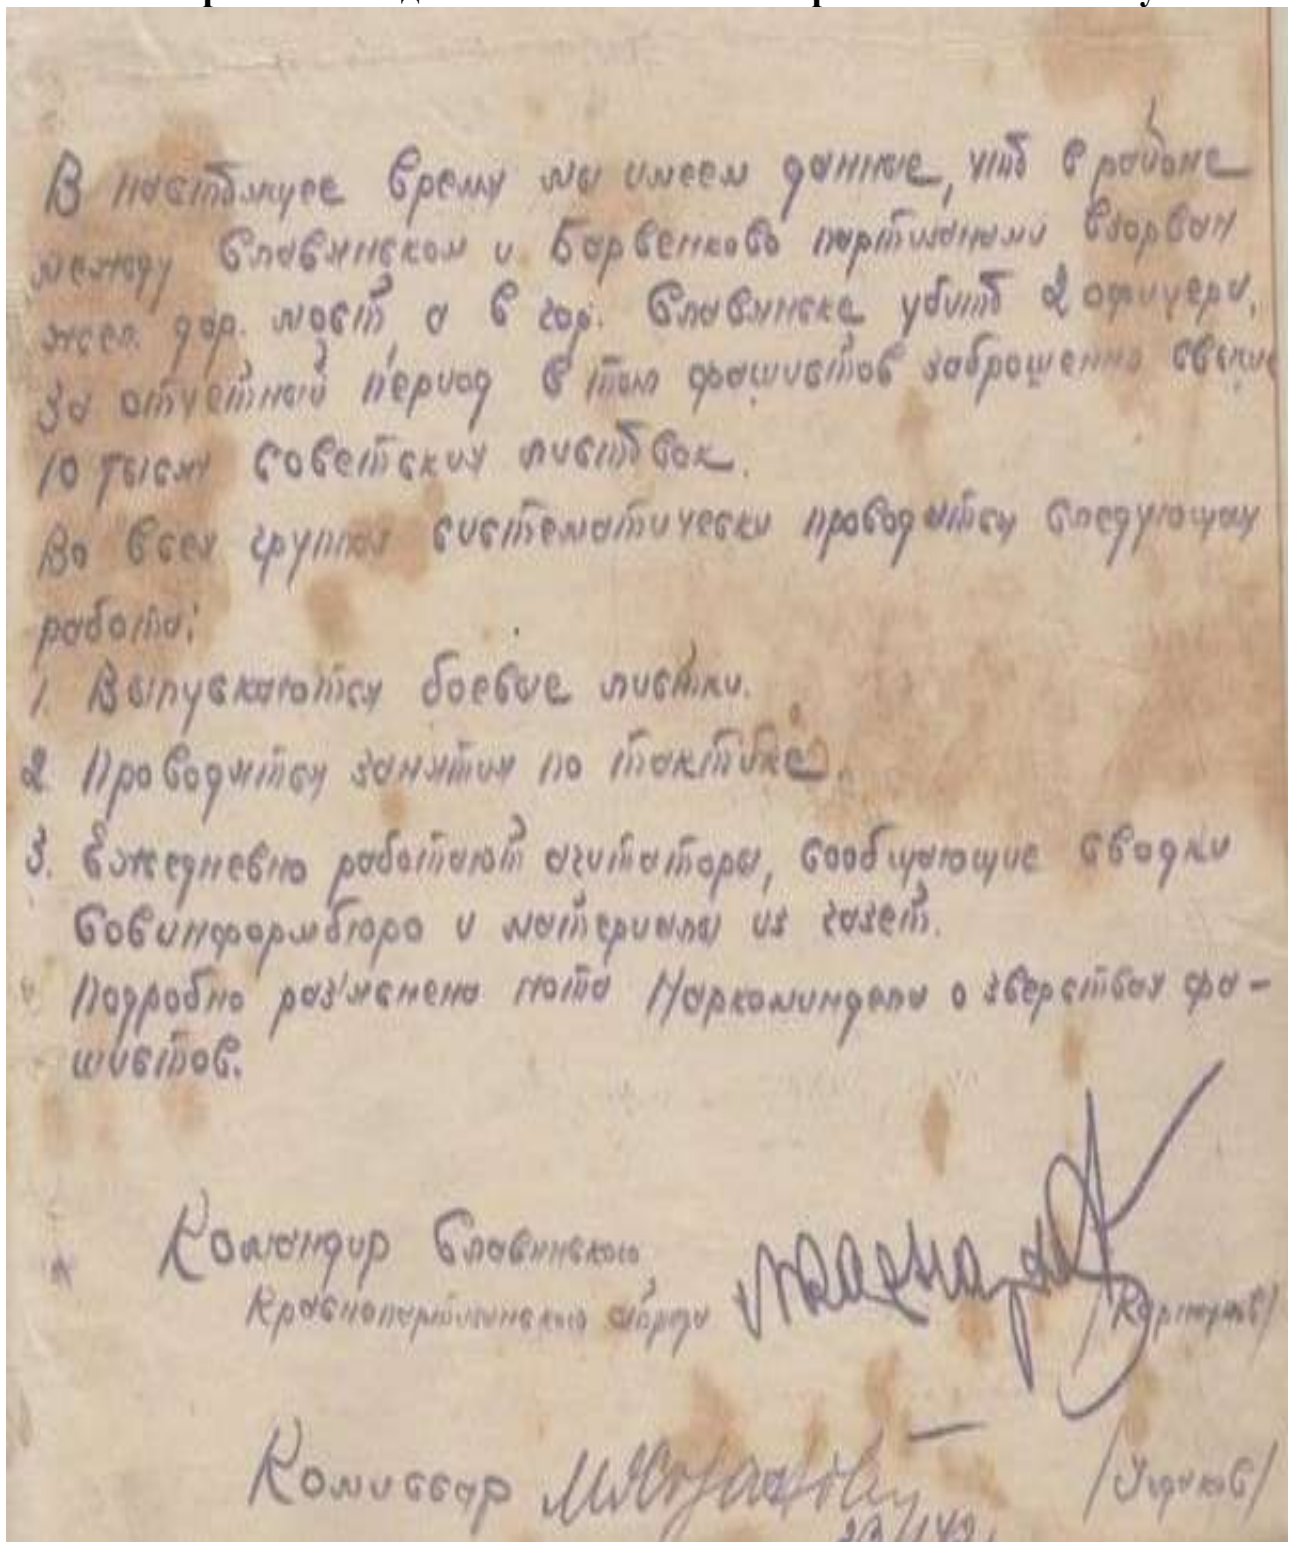 В настоящее время мы имеем данные, что в районе
между Славянском и Барвенково партизанами взорван
жел. дор. мост, а в гор. Славянске убито 2 офицера.
За отчетный период в тыл фашистов заброшенно свыше
10 тысяч советских листовок.
Во всех группах систематически проводится следующая
работа:
1. Выпускаются боевые листки.
2. Проводятся занятия по тактике.
3. Ежедневно работают агитаторы, сообщающие сводки
Совинформбюро и материалы из газет.
Подробно раз'яснена нота Наркоминдела о зверствах фа-
шистов.
Командир Славянского,
Краснолиманского отряда /Карнаухов/
Комиссар